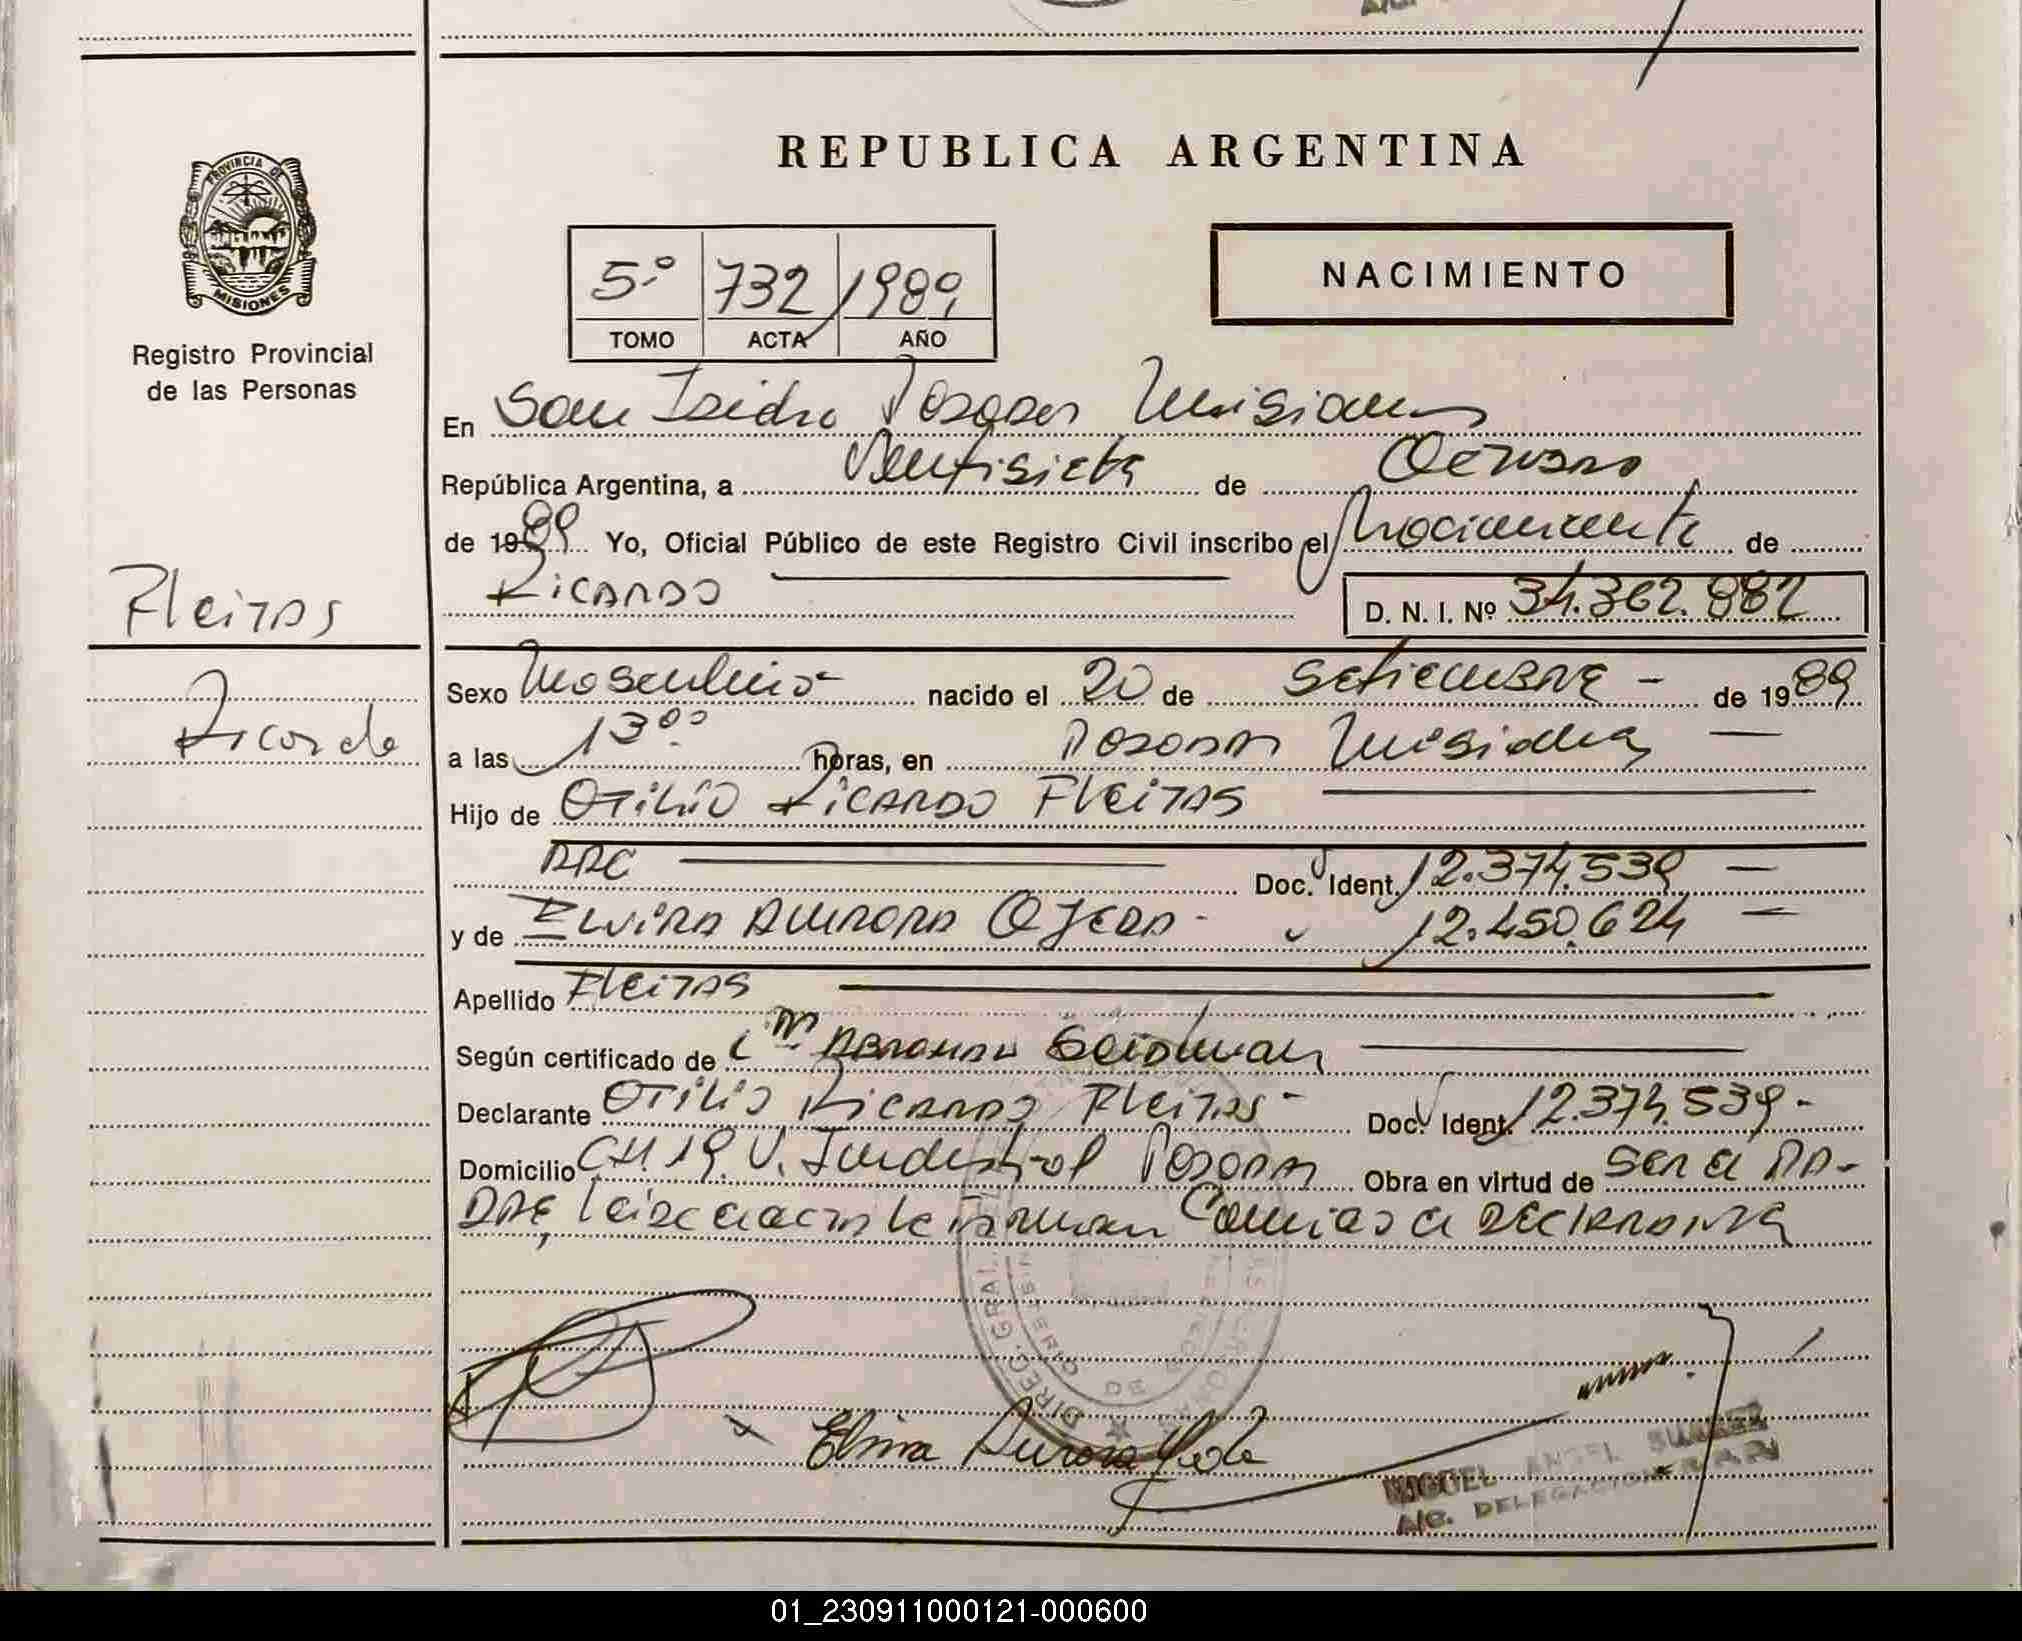 REPUBLICA ARGENTINA
PROVINCIA DE
MISIONES
Registro Provincial
de las Personas
5º 732 1989
TOMO ACTA AÑO
NACIMIENTO
En San Isidro Posadas Misiones
República Argentina, a Ventisiete de Octubre
de 1989 Yo, Oficial Público de este Registro Civil inscribo el Nacimiento de
Ricardo
D. N. I. Nº 34.362.882
Fleitas
Ricardo
Sexo Masculino nacido el 20 de Setiembre - de 1989
a las 13º⁰ horas, en Posadas Misiones —
Hijo de Otilio Ricardo Fleitas
Doc. Ident. 12.374.539 —
y de Elvira Aurora Ojeda - 12.450.624 —
Apellido Fleitas
Según certificado de
Declarante Otilio Ricardo Fleitas - Doc. Ident. 12.374.539 -
Domicilio CH. 19. V. Industrial Posadas Obra en virtud de ser el Pa-
dre, leida el acta la firman Conmigo el declarante
DIREC. GRAL.
Elvira Aurora
MIGUEL ANGEL SUAREZ
A/C. DELEGACION
01_230911000121-000600